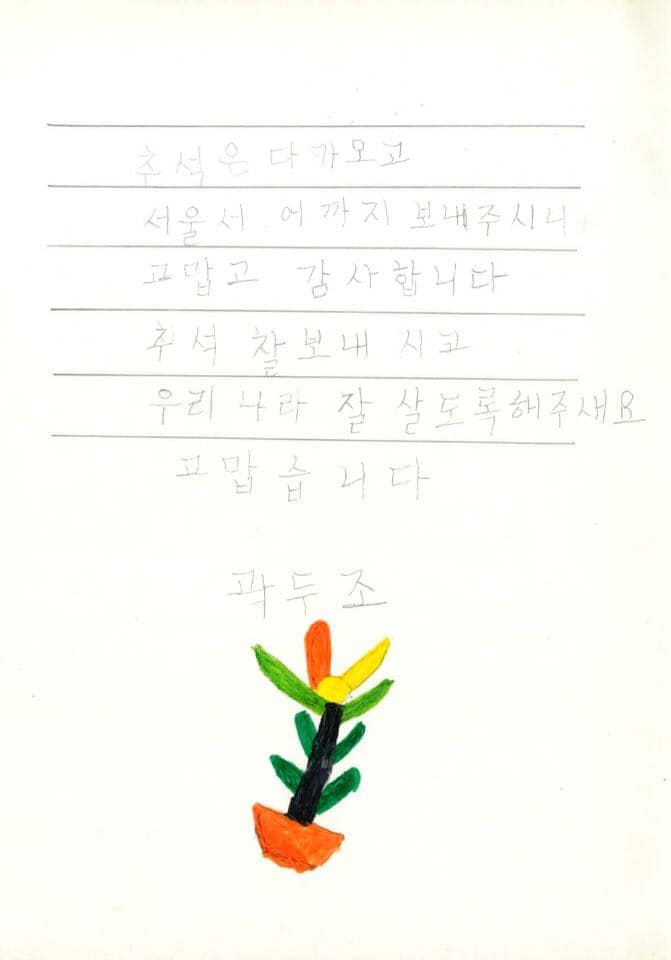 추석은 다가오고
서울서 여까지 보내주시니
고맙고 감사합니다
추석 잘보내 시고
우리 나라 잘 살도록해주새요
고맙습니다
곽두조